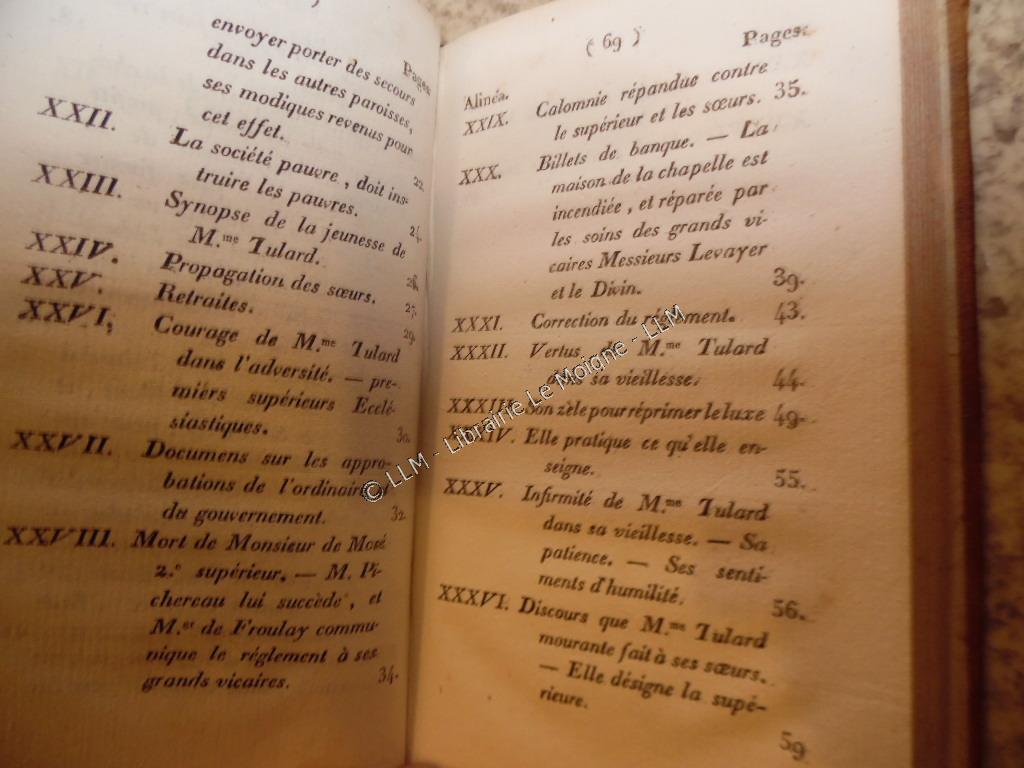 Pages.
envoyer porter des secours
dans les autres paroisses,
ses modiques revenus pour
cet effet. 22.
XXII. La société pauvre, doit ins-
truire les pauvres. 24.
XXIII. Synopse de la jeunesse de
M.me Tulard. 26.
XXIV. Propagation des sœurs. 27.
XXV. Retraites. 29.
XXVI, Courage de M.me Tulard
dans l'adversité. — pre-
miers supérieurs Ecclé-
siastiques. 30.
XXVII. Documens sur les appro-
bations de l'ordinaire et
du gouvernement. 32.
XXVIII. Mort de Monsieur de Moré
2.e supérieur. — M. Pi-
chereau lui succède, et
M.gr de Froulay commu-
nique le réglement à ses
grands vicaires. 34.
( 69 )
Pages.
Alinéa.
XXIX. Calomnie répandue contre
le supérieur et les sœurs. 35.
XXX. Billets de banque. — La
maison de la chapelle est
incendiée, et réparée par
les soins des grands vi
caires Messieurs Levayer
et le Divin. 39.
XXXI. Correction du réglement. 43.
XXXII. Vertus de M.me Tulard
dans sa vieillesse. 44.
XXXIII. Son zèle pour réprimer le luxe 49.
XXXIV. Elle pratique ce qu'elle en-
seigne. 55.
XXXV. Infirmité de M.me Tulard
dans sa vieillesse. — Sa
patience. — Ses senti-
ments d'humilité. 56.
XXXVI. Discours que M.me Tulard
mourante fait à ses sœurs.
— Elle désigne la supé-
rieure. 59
© LLM - Librairie Le Moigne - LLM